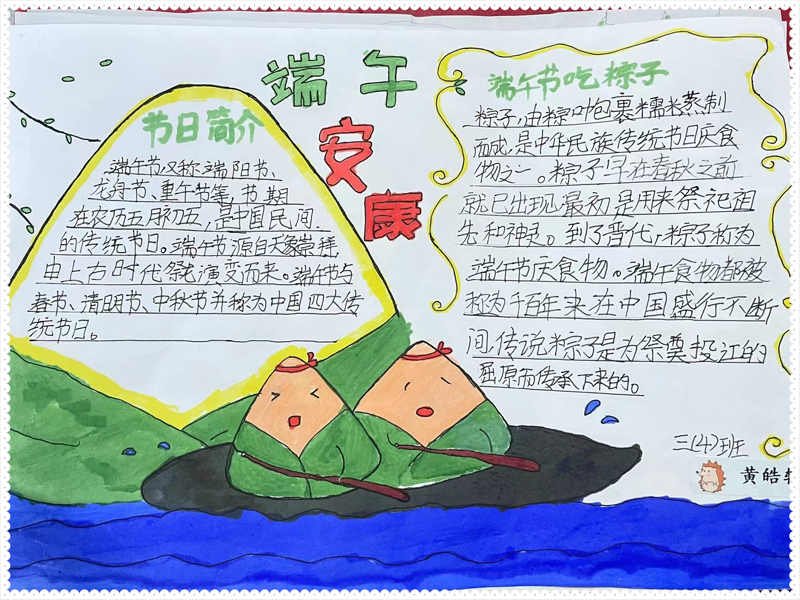 端午
安
康
节日简介
端午节又称端阳节、
龙舟节、重午节等,节期
在农历五月初五,是中国民间
的传统节日。端午节源自天象崇拜,
由上古时代祭龙演变而来。端午节与
春节、清明节、中秋节并称为中国四大传
统节日。
端午节吃粽子
粽子,由粽叶包裹糯米蒸制
而成,是中华民族传统节日庆食
物之一。粽子早在春秋之前
就已出现,最初是用来祭祀祖
先和神灵。到了晋代,粽子称为
端午节庆食物。端午食物都被
称为千百年来在中国盛行不断
间,传说粽子是为祭奠投江的
屈原而传承下来的。
三(4)班
黄皓